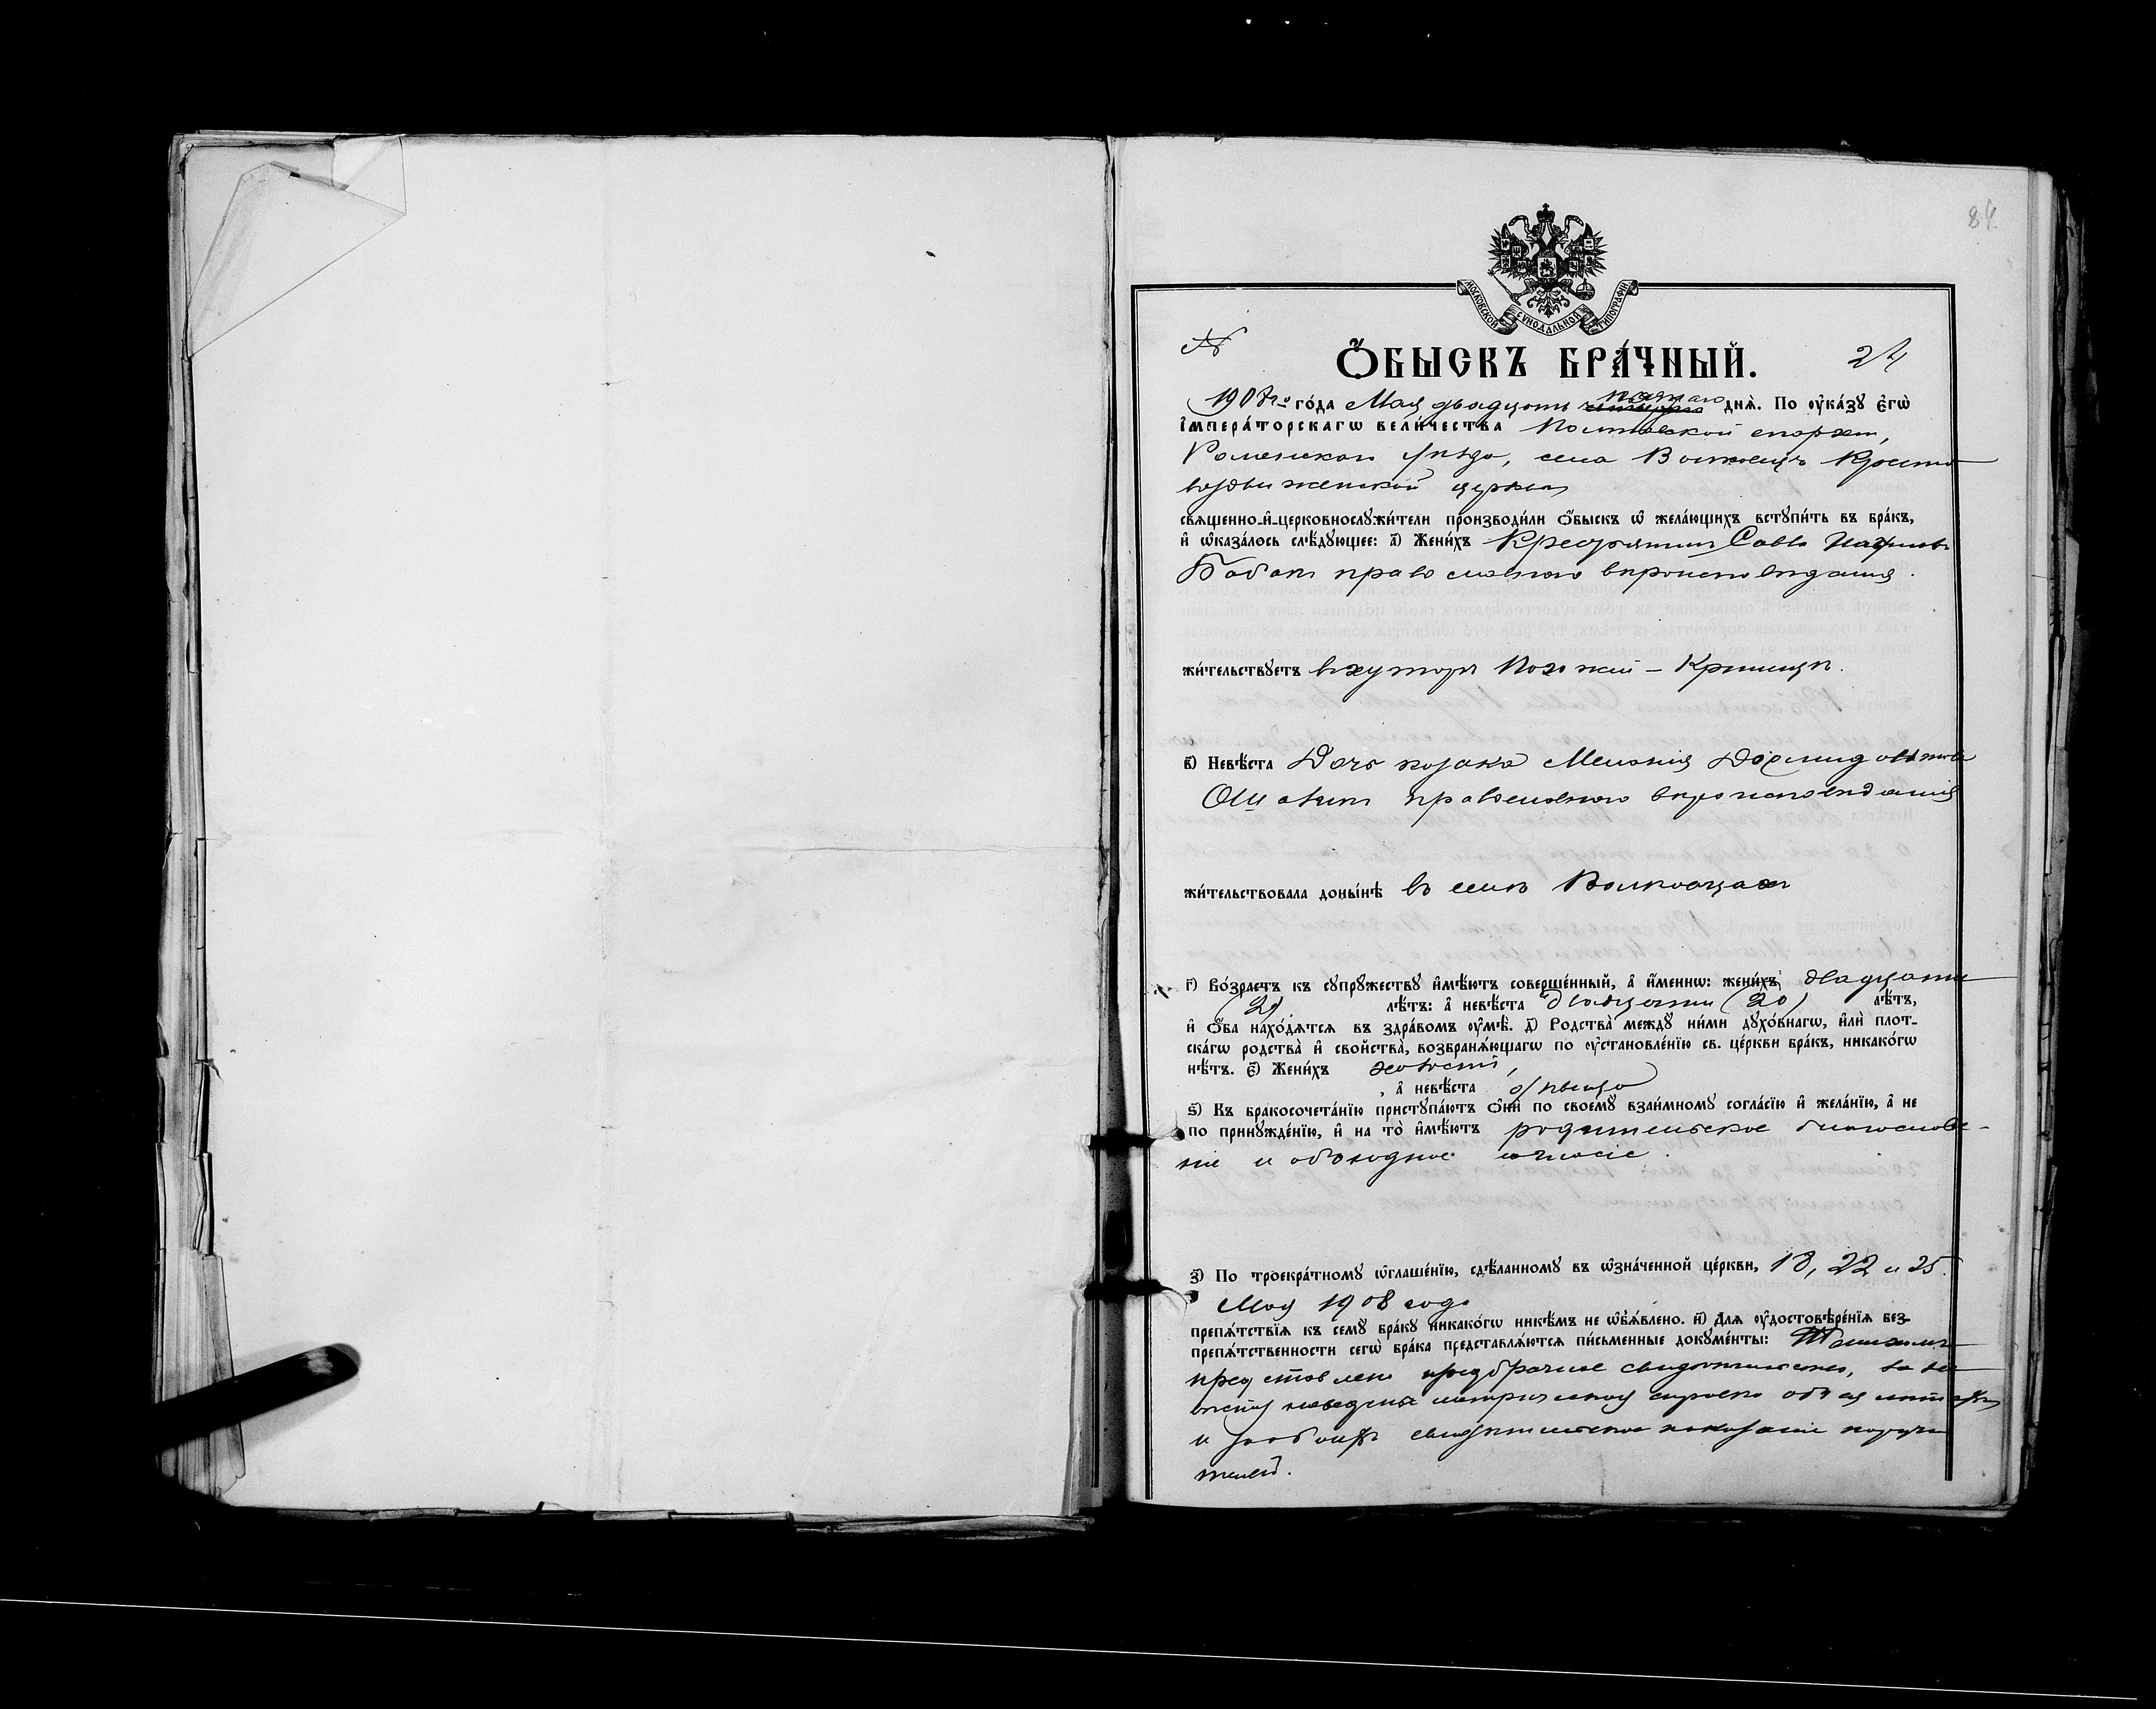 84
МОСКОВСКОЙ СУНОДАЛЬНОЙ ТИПОГРАФІИ
№ 24
Ѻ҆БЫСКЪ БРА́ЧНЫЙ.
1908го го́да Мая двадцать пятаго днѧ̀. По ᲂу҆ка́зꙋ є҆гѡ̀
і҆мпера́торскагѡ вели́чества Полтавской епархіи,
Роменскаго уѣзда, села Волковецъ Кресто
воздвиженской церкви
свѧщенно-и҆-церковнослꙋжи́тели производи́ли ѻ҆́быскъ ѡ҆ жела́ющихъ встꙋпи́ть въ бра́къ,
и҆ ѡ҆каза́лось слѣ́дꙋющее: а҃) Жени́хъ Крестьянинъ Савва Наумовъ
Бабакъ православнаго вѣроисповѣданія.
жи́тельствꙋетъ въ хуторѣ Криницѣ.
в҃) Невѣ́ста Дочь козака Меланія Діомидовна
православнаго вѣроисповѣданія
жи́тельствовала доны́нѣ въ селѣ Волковцахъ
г҃) Во́зрастъ къ сꙋпрꙋ́жествꙋ и҆мѣ́ютъ соверше́нный, а҆ и҆́меннѡ: жени́хъ двадцати
лѣ́тъ: а҆ невѣ́ста двадцати (20) лѣ́тъ,
и҆ ѻ҆́ба нахо́дѧтсѧ въ здра́вомъ ᲂу҆мѣ̀. д҃) Родства̀ междꙋ̀ ни́ми дꙋхо́внагѡ, и҆лѝ плот-
ска́гѡ родства̀ и҆ свойства̀, возбранѧ́ющагѡ по ᲂу҆становле́нїю св. це́ркви бра́къ, никако́гѡ
нѣ́тъ. є҃) Жени́хъ холостъ,
, а҆ невѣ́ста дѣвица
ѕ҃) Къ бракосочета́нїю пристꙋпа́ютъ ѻ҆нѝ по своемꙋ̀ взаи́мномꙋ согла́сїю и҆ жела́нїю, а҆ не
по принꙋжде́нїю, и҆ на то̀ и҆мѣ́ютъ родительское благослове-
ніе и обоюдное согласіе.
з҃) По троекра́тномꙋ ѡ҆глаше́нїю, сдѣ́ланномꙋ въ ѡ҆зна́ченной це́ркви, 18, 22 и 25.
Мая 1908 года
препѧ́тствїѧ къ семꙋ̀ бра́кꙋ никако́гѡ никѣ́мъ не ѡ҆б̾ѧ́влено. и҃) Для ᲂу҆достовѣре́нїѧ без-
препѧ́тственности сегѡ̀ бра́ка представлѧ́ютсѧ пи́сьменные докꙋме́нты: Женихомъ
представлено предбрачное свидѣтельство, за не
вѣсту наведена метрическая справка объ ея лѣтахъ
и за обоихъ свидѣтельское показаніе поручи
телей.